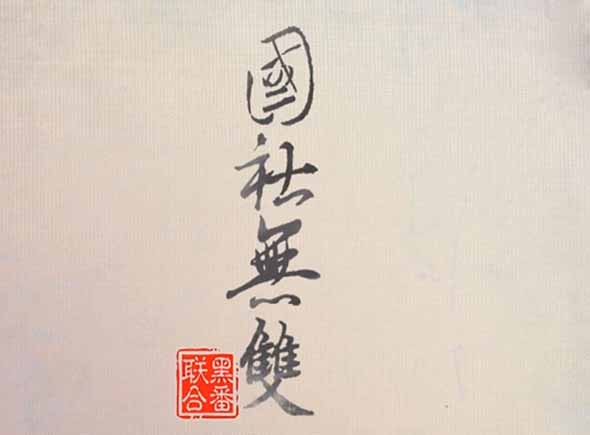 國社無雙
黑番
联合